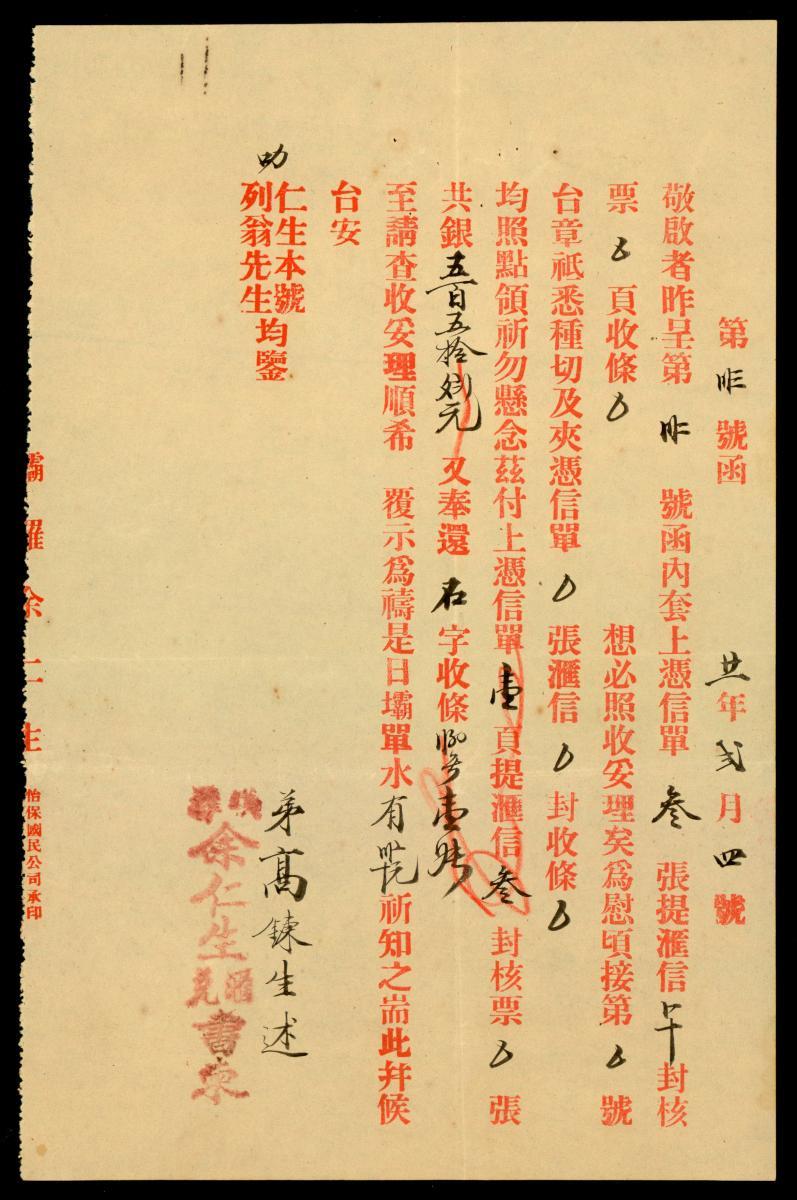 第 昨 號函
廿年 弍月 四號
敬啟者昨呈第 昨 號函內套上憑信單 叁 張提滙信 封核
票 頁收條 想必照收妥理矣為慰頃接第 號
台章祇悉種切及夾憑信單 張滙信 封收條
均照點領祈勿懸念茲付上憑信單 壹 頁提滙信 叁 封核票 張
共銀 五百五拾 元 又奉還 石 字收條 壹
至請查收妥理順希 覆示為禱是日壩單水 有 祈知之耑此并候
台安
叻
仁生本號
列翁先生 均鑒
弟高鍊生述
壩羅 余仁生 滙兌 書柬
壩羅余仁生
怡保國民公司承印